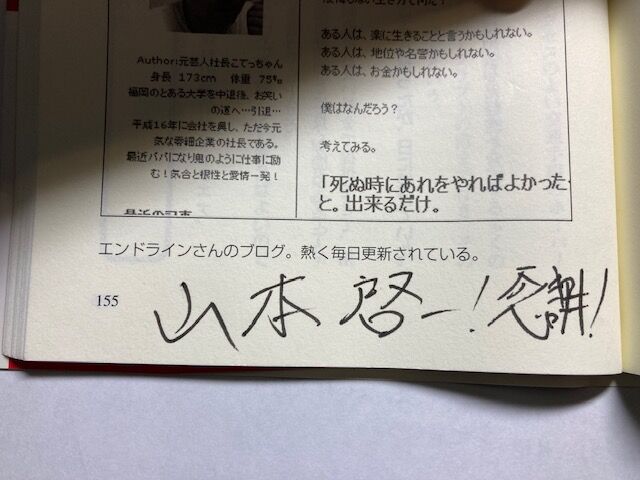 Author:元芸人社長こてっちゃん
身長 173cm 体重 75㎏
福岡のとある大学を中退後、お笑い
の道へ…引退…
平成16年に会社を興し、ただ今元
気な零細企業の社長である。
最近パパになり鬼のように仕事に励
む！気合と根性と愛情一発！
ある人は、楽に生きることと言うかもしれない。
ある人は、地位や名誉かもしれない。
ある人は、お金かもしれない。
僕はなんだろう？
考えてみる。
「死ぬ時にあれをやればよかった
と。出来るだけ。
エンドラインさんのブログ。熱く毎日更新されている。
155
山本啓一！感謝！